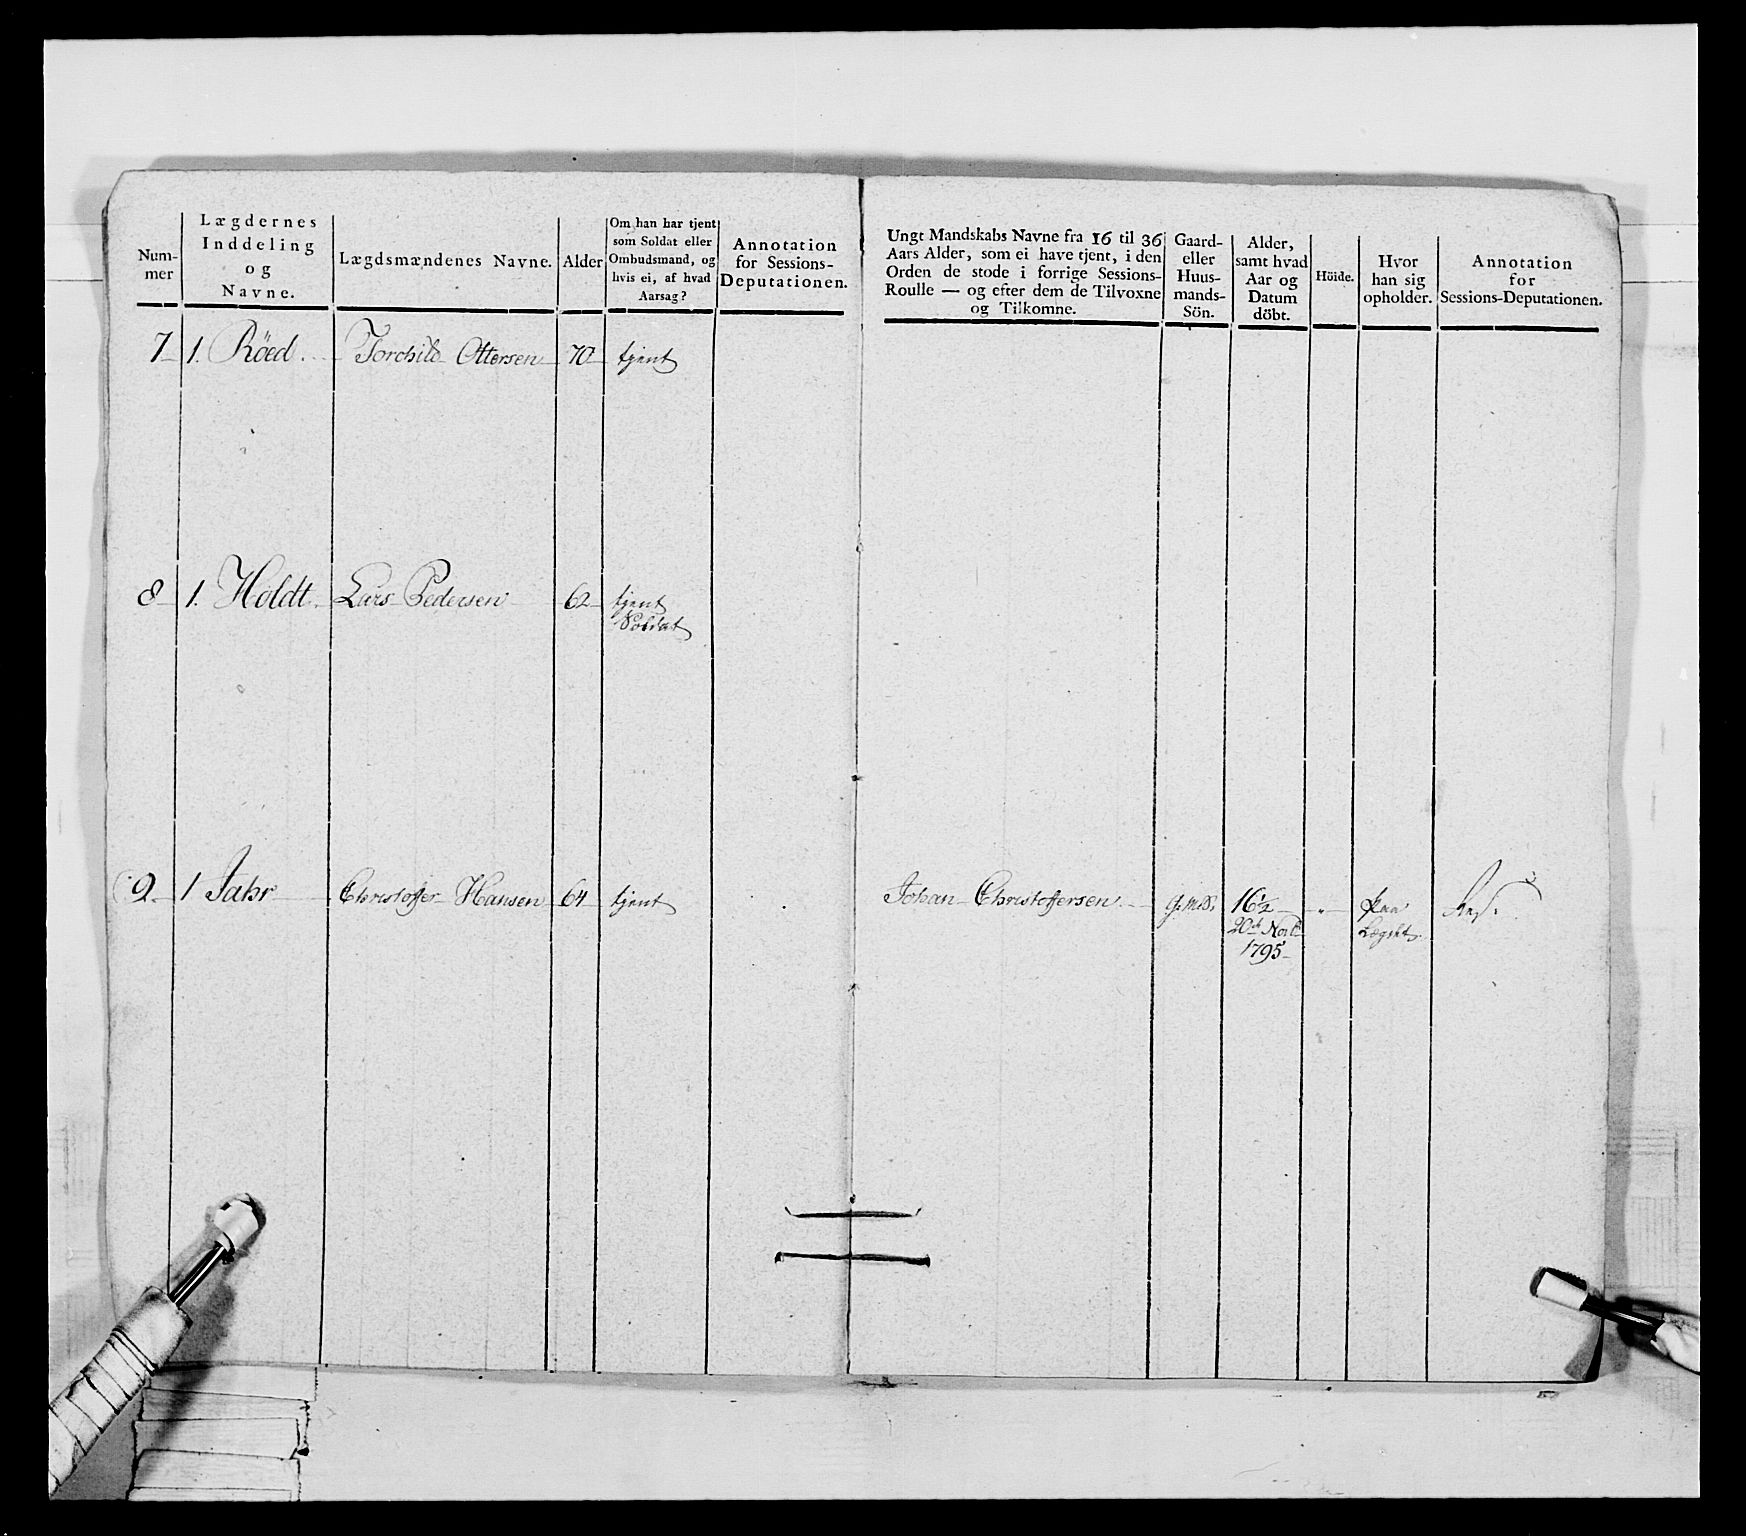 Num-
mer
Lægdernes
Inddeling
og
Navne.
Lægdsmændenes Navne.
Alder
Om han har tjent
som Soldat eller
Ombudsmand, og
hvis ei, af hvad
Aarsag?
Annotation
for Sessions-
Deputationen.
Ungt Mandskabs Navne fra 16 til 36
Aars Alder, som ei have tjent, i den
Orden de stode i forrige Sessions-
Roulle — og efter dem de Tilvoxne
og Tilkomne.
Gaard-
eller
Huus-
mands-
Sön.
Alder,
samt hvad
Aar og
Datum
döbt.
Höide.
Hvor
han sig
opholder.
Annotation
for
Sessions-Deputationen.
7 1. Röed. Torchild Ottersen 70 tjent
8 1. Holdt. Lars Pedersen 62 tjent
Soldat
9. 1 Jahr Christoffer Hansen 64 tjent Johan Christoffersen 16½ paa
20de Novb
1795
Lægdet